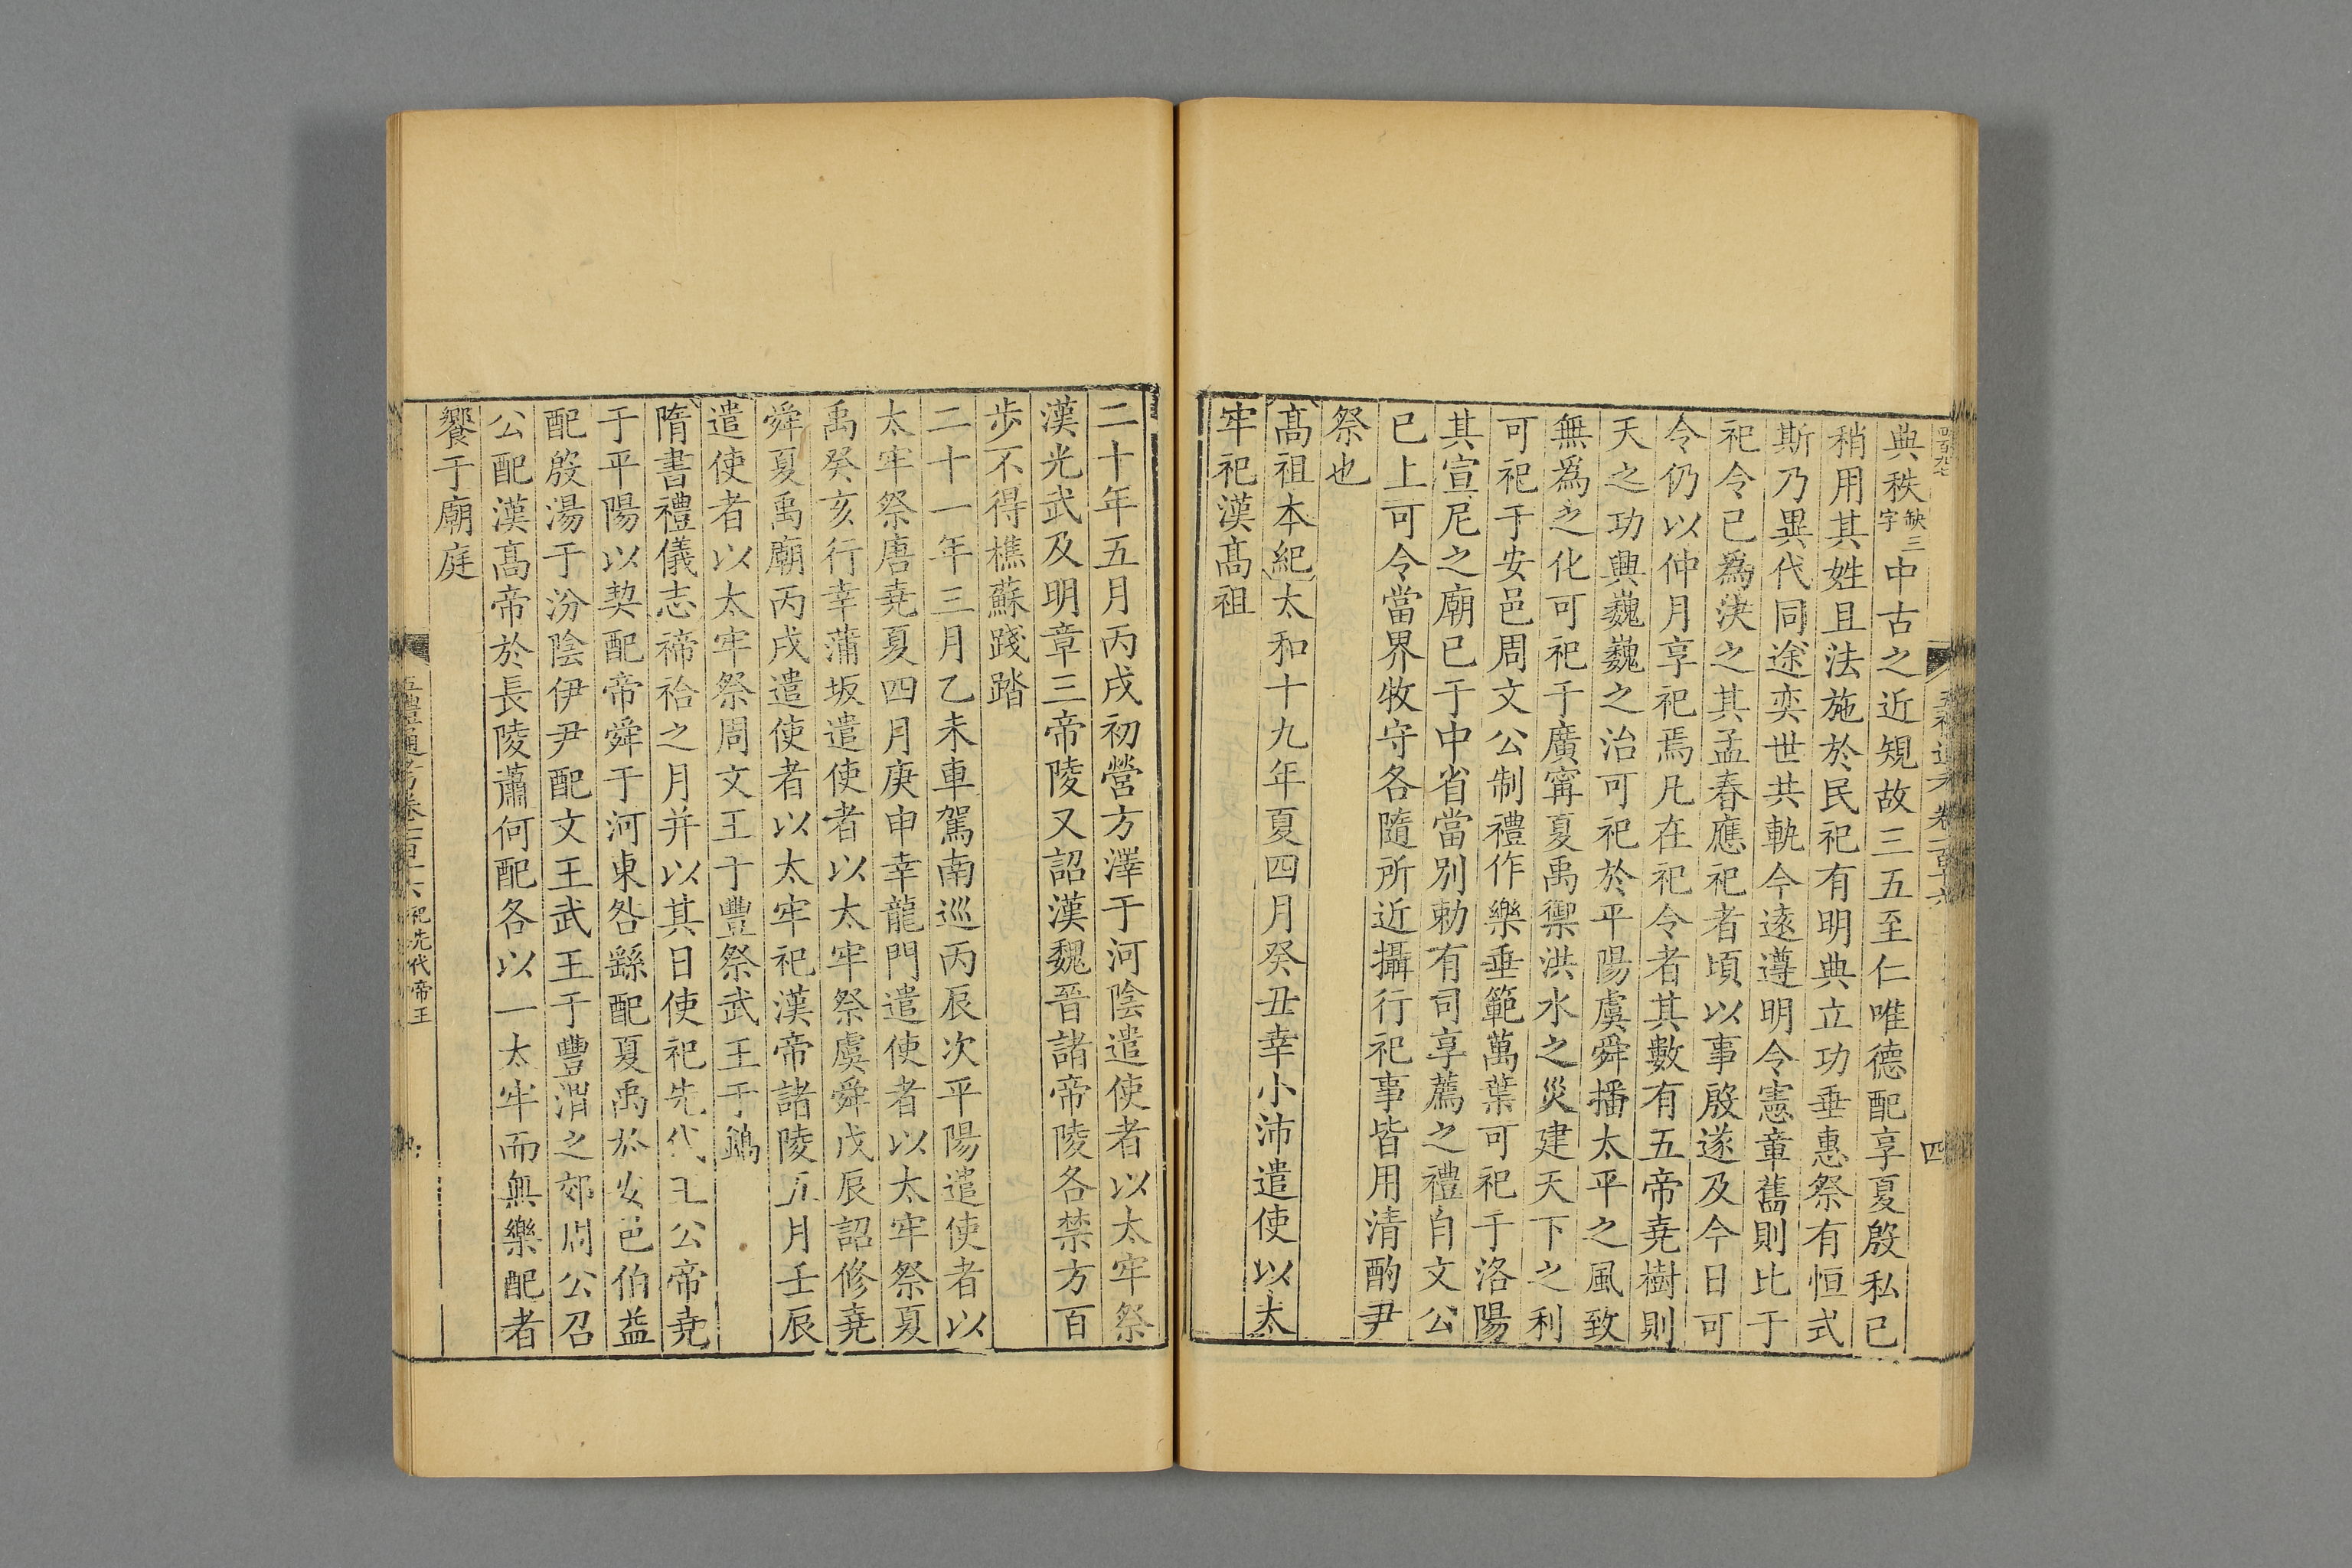 典秩缺三字中古之近規故三五至仁唯德配享夏殷私已
稍用其姓且法施於民祀有明典立功垂惠祭有恒式
斯乃異代同途奕世共軌今遠遵明令憲章舊則比于
祀令已爲決之其孟春應祀者頃以事殷遂及今日可
令仍以仲月享祀焉凡在祀令者其數有五帝堯樹則
天之功興巍巍之治可祀於平陽虞舜播太平之風致
無爲之化可祀于廣甯夏禹禦洪水之災建天下之利
可祀于安邑周文公制禮作樂垂範萬葉可祀于洛陽
其宣尼之廟已于中省當別勅有司享薦之禮自文公
已上可令當界牧守各隨所近攝行祀事皆用清酌尹
祭也
高祖本紀太和十九年夏四月癸丑幸小沛遣使以太
牢祀漢高祖
二十年五月丙戌初營方澤于河陰遣使者以太牢祭
漢光武及明章三帝陵又詔漢魏晉諸帝陵各禁方百
步不得樵蘇踐踏
二十一年三月乙未車駕南巡丙辰次平陽遣使者以
太牢祭唐堯夏四月庚申幸龍門遣使者以太牢祭夏
禹癸亥行幸蒲坂遣使者以太牢祭虞舜戊辰詔修堯
舜夏禹廟丙戌遣使者以太牢祀漢帝諸陵五月壬辰
遣使者以太牢祭周文王于豐祭武王于鎬
隋書禮儀志禘祫之月并以其日使祀先代王公帝堯
于平陽以契配帝舜于河東咎繇配夏禹於安邑伯益
配殷湯于汾陰伊尹配文王武王于豐渭之郊周公召
公配漢高帝於長陵蕭何配各以一太牢而無樂配者
饗于廟庭
五禮通考卷一百十六 祀先代帝王
四